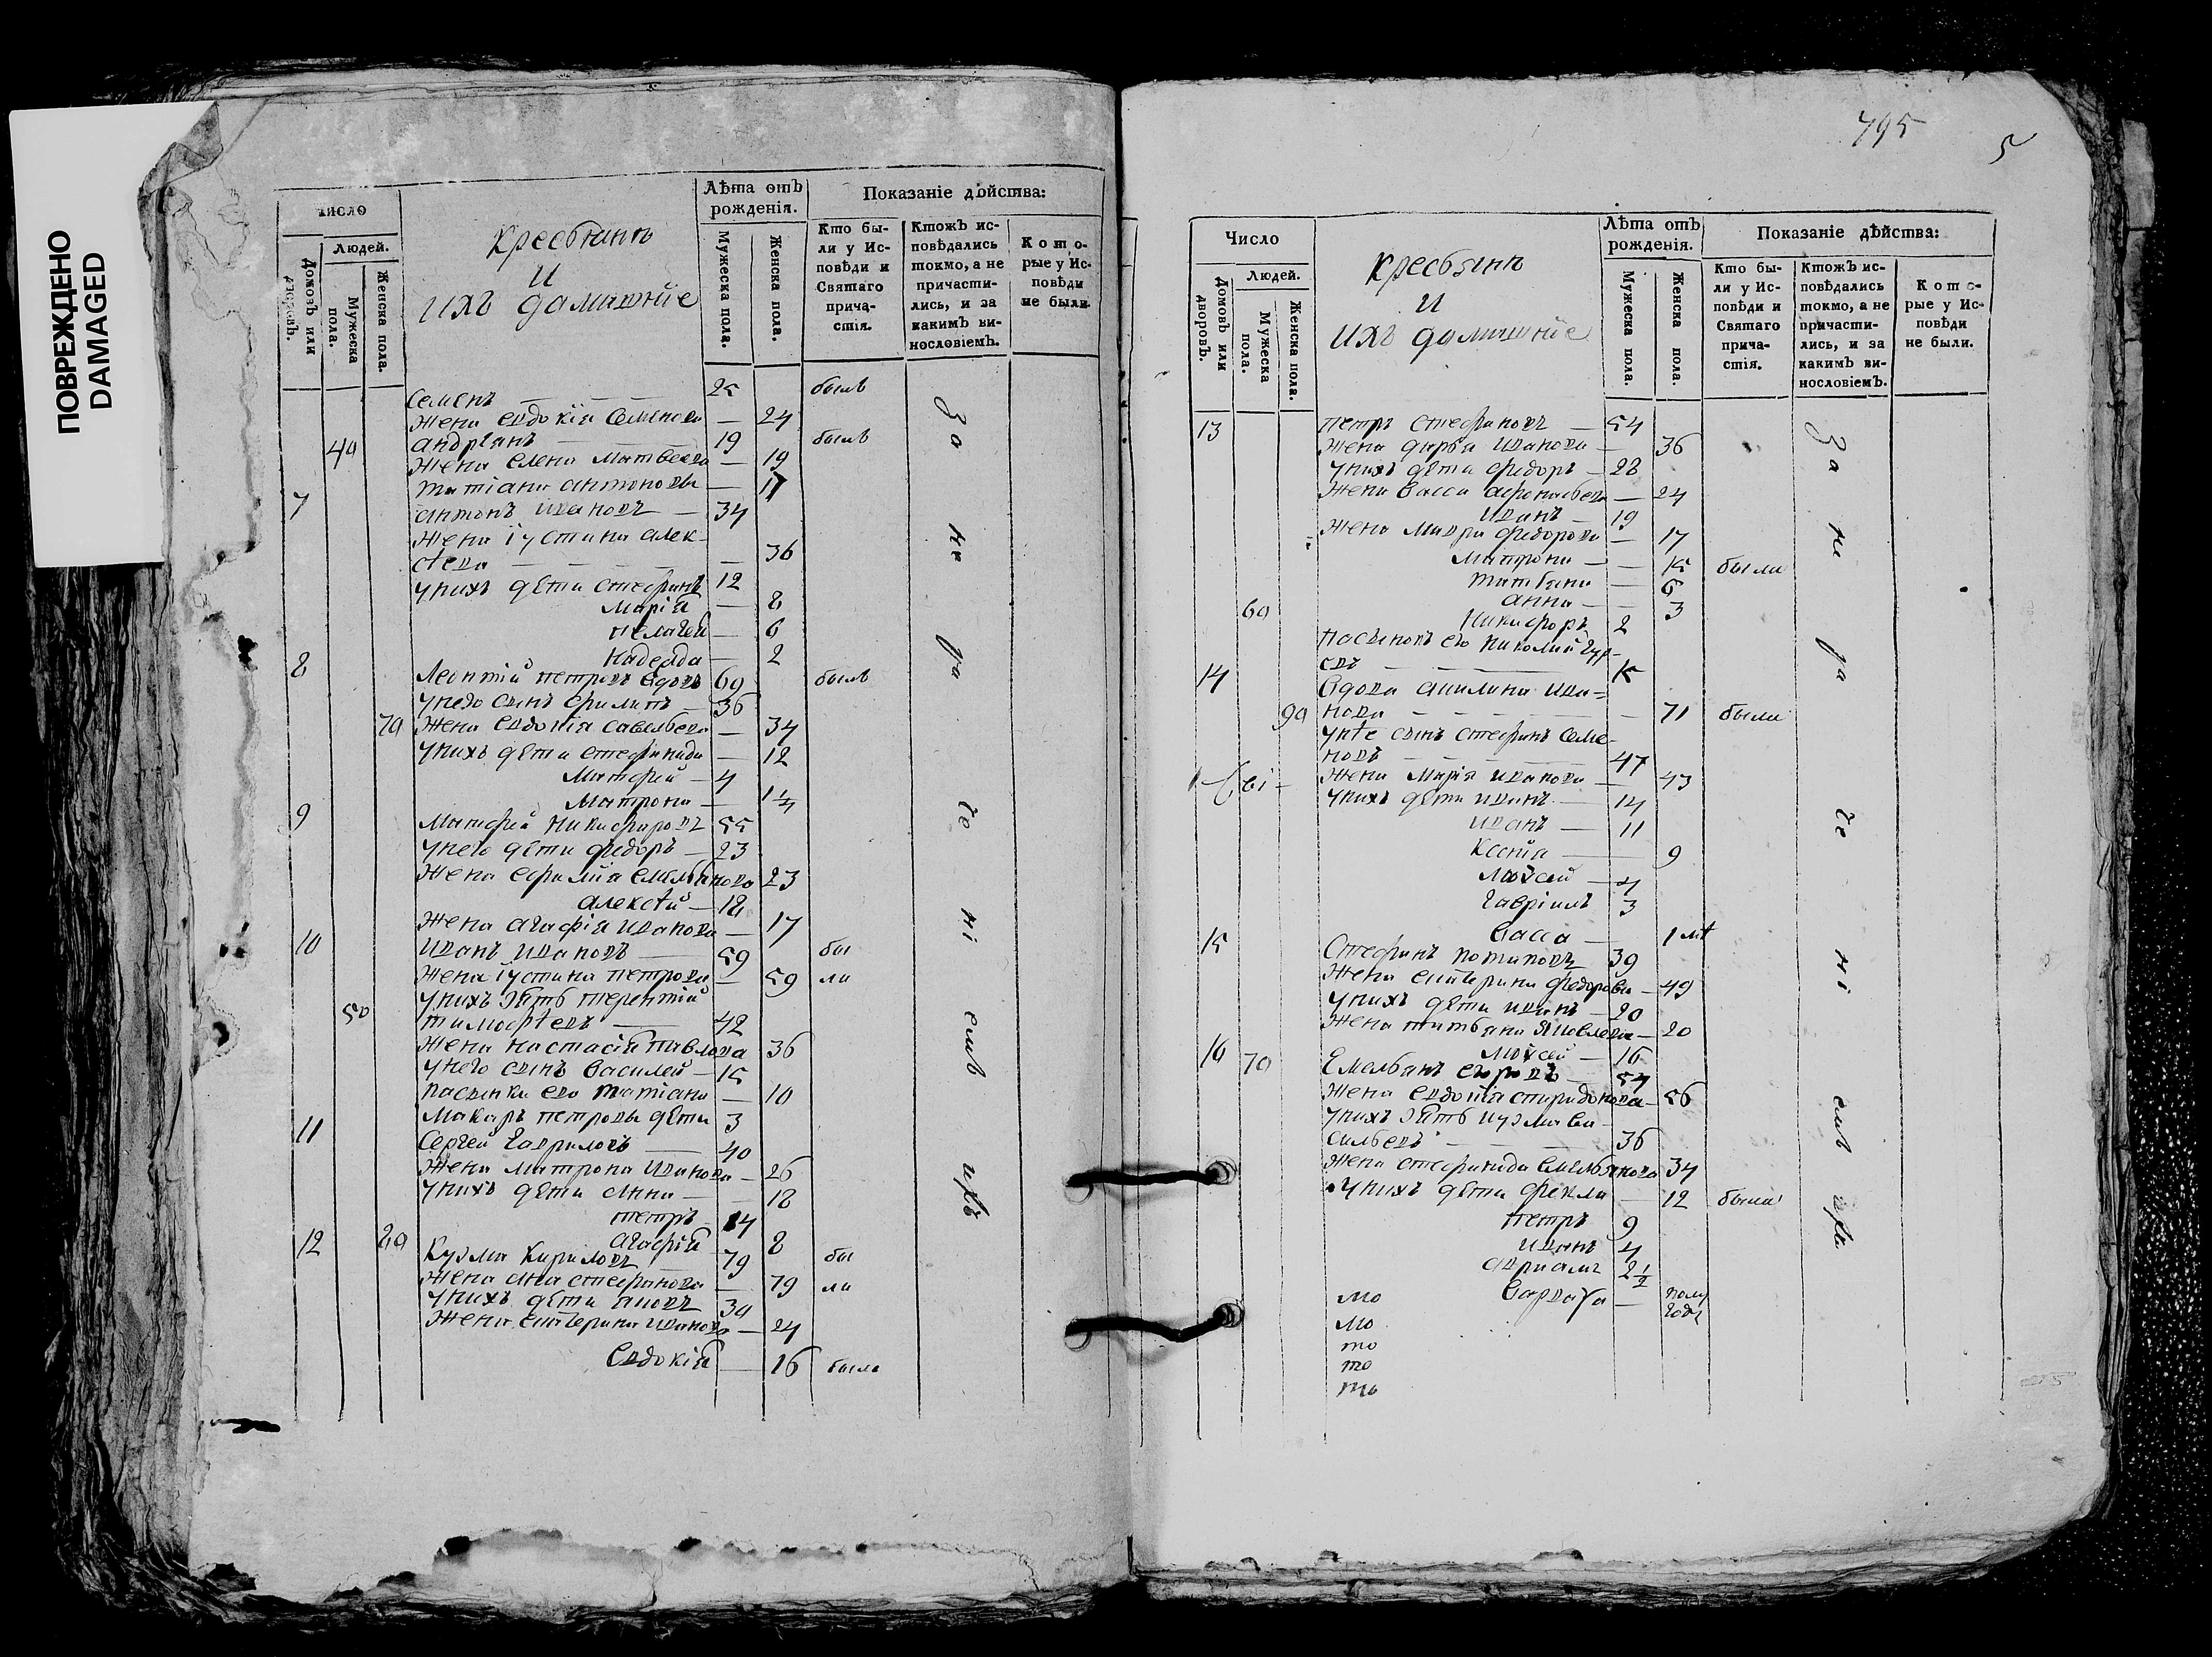 ПОВРЕЖДЕНО
DAMAGED
Число
Людей.
Домовъ или дворовъ.
Мужеска пола.
Женска пола.
Крестьянъ
и
ихъ домашние
Лѣта отъ рожденiя.
Мужеска пола.
Женска пола.
Показанiе дѣйства:
Кто бы-
ли у Ис-
повѣди и
Святаго
прича-
стiя.
Ктожъ ис-
повѣдались
токмо, а не
причасти-
лись, и за
какимъ ви-
нословiемъ.
Кото-
рые у Ис-
повѣди
не были.
Семенъ 25 былъ
жена евдокiя Семенова — 24
андрiанъ 19 былъ
жена елена матвеева — 19
татiана антонова — 17
7 антонъ ивановъ — 34
жена iустина алек-
сѣева — 36
у нихъ дѣти стефанъ 12
марiя — 8
пелагея — 6
надежда — 2
8 Леонтiй петровъ вдовъ 69 былъ
у него сынъ филипъ — 36
жена евдокiя савельева — 34
у нихъ дѣти стефанида — 12
Матфей — 4
Матрона — 1 1/4
9 Матфей никифоровъ 55
у него дѣти федоръ — 23
жена ефимiя емельянова 23
алексѣй — 18
жена агафiя иванова — 17
10 иванъ ивановъ 59 бы
жена iустина петрова — 59 ли
у нихъ зять терентiй
тимофѣевъ — 42
жена настасiя павлова 36
у него сынъ василей — 15
пасынки его татiана — 10
Макаръ петровы дѣти 3
11 Сергей гавриловъ — 40
жена матрона иванова — 26
у нихъ дѣти анна — 18
петръ 14
агафiя 8
12 Кузма кириловъ 79 бы
жена анна стефанова — 79 ли
у нихъ дѣти яковъ 30
жена екатерина иванова — 24
Евдокiя — 16 была
за не да че нi емъ ихъ
795
5
Число
Людей.
Домовъ или дворовъ.
Мужеска пола.
Женска пола.
Крестьянъ
и
ихъ домашние
Лѣта отъ рожденiя.
Мужеска пола.
Женска пола.
Показанiе дѣйства:
Кто бы-
ли у Ис-
повѣди и
Святаго
прича-
стiя.
Ктожъ ис-
повѣдались
токмо, а не
причасти-
лись, и за
какимъ ви-
нословiемъ.
Кото-
рые у Ис-
повѣди
не были.
13 петръ стефановъ — 54
жена дарья иванова — 36
у нихъ дѣти федоръ — 28
жена васса афонасьева — 24
иванъ — 19
жена мавра федорова — 17
матрона — 15 были
татьяна — 6
анна — 3
никифоръ 2
пасынокъ его николай
14 вдова акилина ива-
нова — 71 была
у нее сынъ стефанъ семе-
новъ — 47
жена марiя иванова — 43
у нихъ дѣти иванъ — 14
иванъ — 11
Ксенiя — 9
моѵсей — 4
гаврiилъ 3
васса — 1
15 Стефанъ потаповъ 39
жена екатерина федорова — 49
у нихъ дѣти иванъ — 20
жена татьяна яковлева — 20
моѵсей — 16
16 Емельянъ 54
жена евдокiя спиридонова — 56
у нихъ зять кузма ва-
сильевъ — 36
жена стефанида емельянова 34
у нихъ дѣти фекла — 12 была
петръ 9
иванъ 4
2 1/2
варвара — полу
года
мо
мо
то
то
то
за не да че нi емъ ихъ